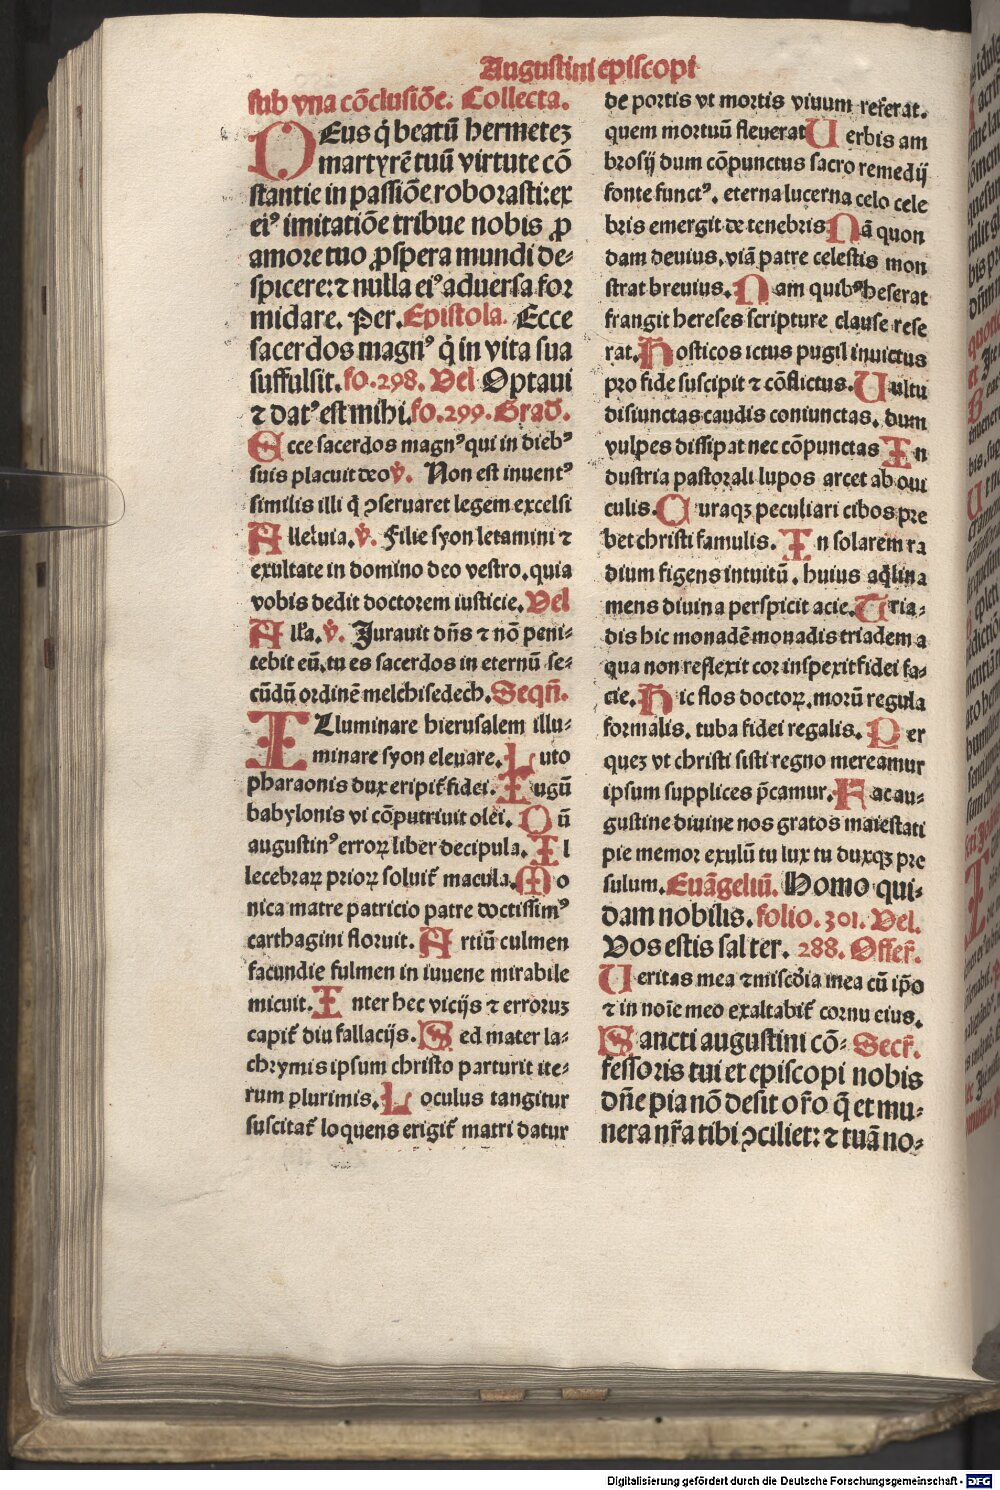 Augustini episcopi
sub vna cōclusiōe. Collecta.
DEus q̇ beatū hermeteꝫ
martyrē tuū virtute cō
stantie in passiōe roborasti: ex
eiꝰ imitatiōe tribue nobis ꝓ
amore tuo ꝓspera mundi de-
spicere: ⁊ nulla eiꝰ aduersa for
midare. Per. Epistola. Ecce
sacerdos magnꝰ q̇ in vita sua
suffulsit. fo.298. Vel Optaui
⁊ datꝰ est mihi. fo.299. Grad̄.
Ecce sacerdos magnꝰ qui in diebꝰ
suis placuit deo ꝟ. Non est inuentꝰ
similis illi q̇ ꝯseruaret legem excelsi
Alleluia. ꝟ. Filie syon letamini ⁊
exultate in domino deo vestro. quia
vobis dedit doctorem iusticie. Vel
Allā. ꝟ. Jurauit dn̄s ⁊ nō peni-
tebit eū. tu es sacerdos in eternū se-
cūdū ordinē melchisedech. Seqn̄.
ILluminare hierusalem illu-
minare syon eleuare. Luto
pharaonis dux eripit̄ fidei. Iugū
babylonis vi cōputriuit olei. Dū
augustinꝰ erroꝝ liber decipula. Il
lecebraꝝ prioꝝ soluit̄ macula. Mo
nica matre patricio patre doctissimꝰ
carthagini floruit. Artiū culmen
facundie fulmen in iuuene mirabile
micuit. Inter hec vicijs ⁊ erroruꝫ
capit̄ diu fallacijs. Sed mater la-
chrymis ipsum christo parturit ite-
rum plurimis. Loculus tangitur
suscitat̄ loquens erigit̄ matri datur
de portis vt mortis viuum referat.
quem mortuū fleuerat Uerbis am
brosij dum cōpunctus sacro remedij
fonte functꝰ. eterna lucerna celo cele
bris emergit de tenebris Nā quon
dam deuius. viā patre celestis mon
strat breuius. Nam quibꝰ heserat
frangit hereses scripture clause rese
rat. Hosticos ictus pugil inuictus
pro fide suscipit ⁊ cōflictus. Uultu
disiunctas caudis coniunctas. dum
vulpes dissipat nec cōpunctas In
dustria pastorali lupos arcet ab oui
culis. Curaqꝫ peculiari cibos pre
bet christi famulis. In solarem ra
dium figens intuitū. huius aq̇lina
mens diuina perspicit acie. Tria-
dis hic monadē monadis triadem a
qua non reflexit cor inspexit fidei fa-
cie. Hic flos doctoꝝ. morū regula
formalis. tuba fidei regalis. Per
queꝫ vt christi sisti regno mereamur
ipsum supplices p̄camur. Fac au-
gustine diuine nos gratos maiestati
pie memor exulū tu lux tu duxqꝫ pre
sulum. Euāgeliū. Homo qui-
dam nobilis. folio.301. Vel.
Vos estis sal ter. 288. Offer̄.
Ueritas mea ⁊ misc̄dia mea cū ip̄o
⁊ in noīe meo exaltabit̄ cornu eius.
Sancti augustini cō- Secr̄.
fessoris tui et episcopi nobis
dn̄e pia nō desit ōro q̄ et mu-
nera nr̄a tibi ꝯciliet: ⁊ tuā no-
Digitalisierung gefördert durch die Deutsche Forschungsgemeinschaft - DFG